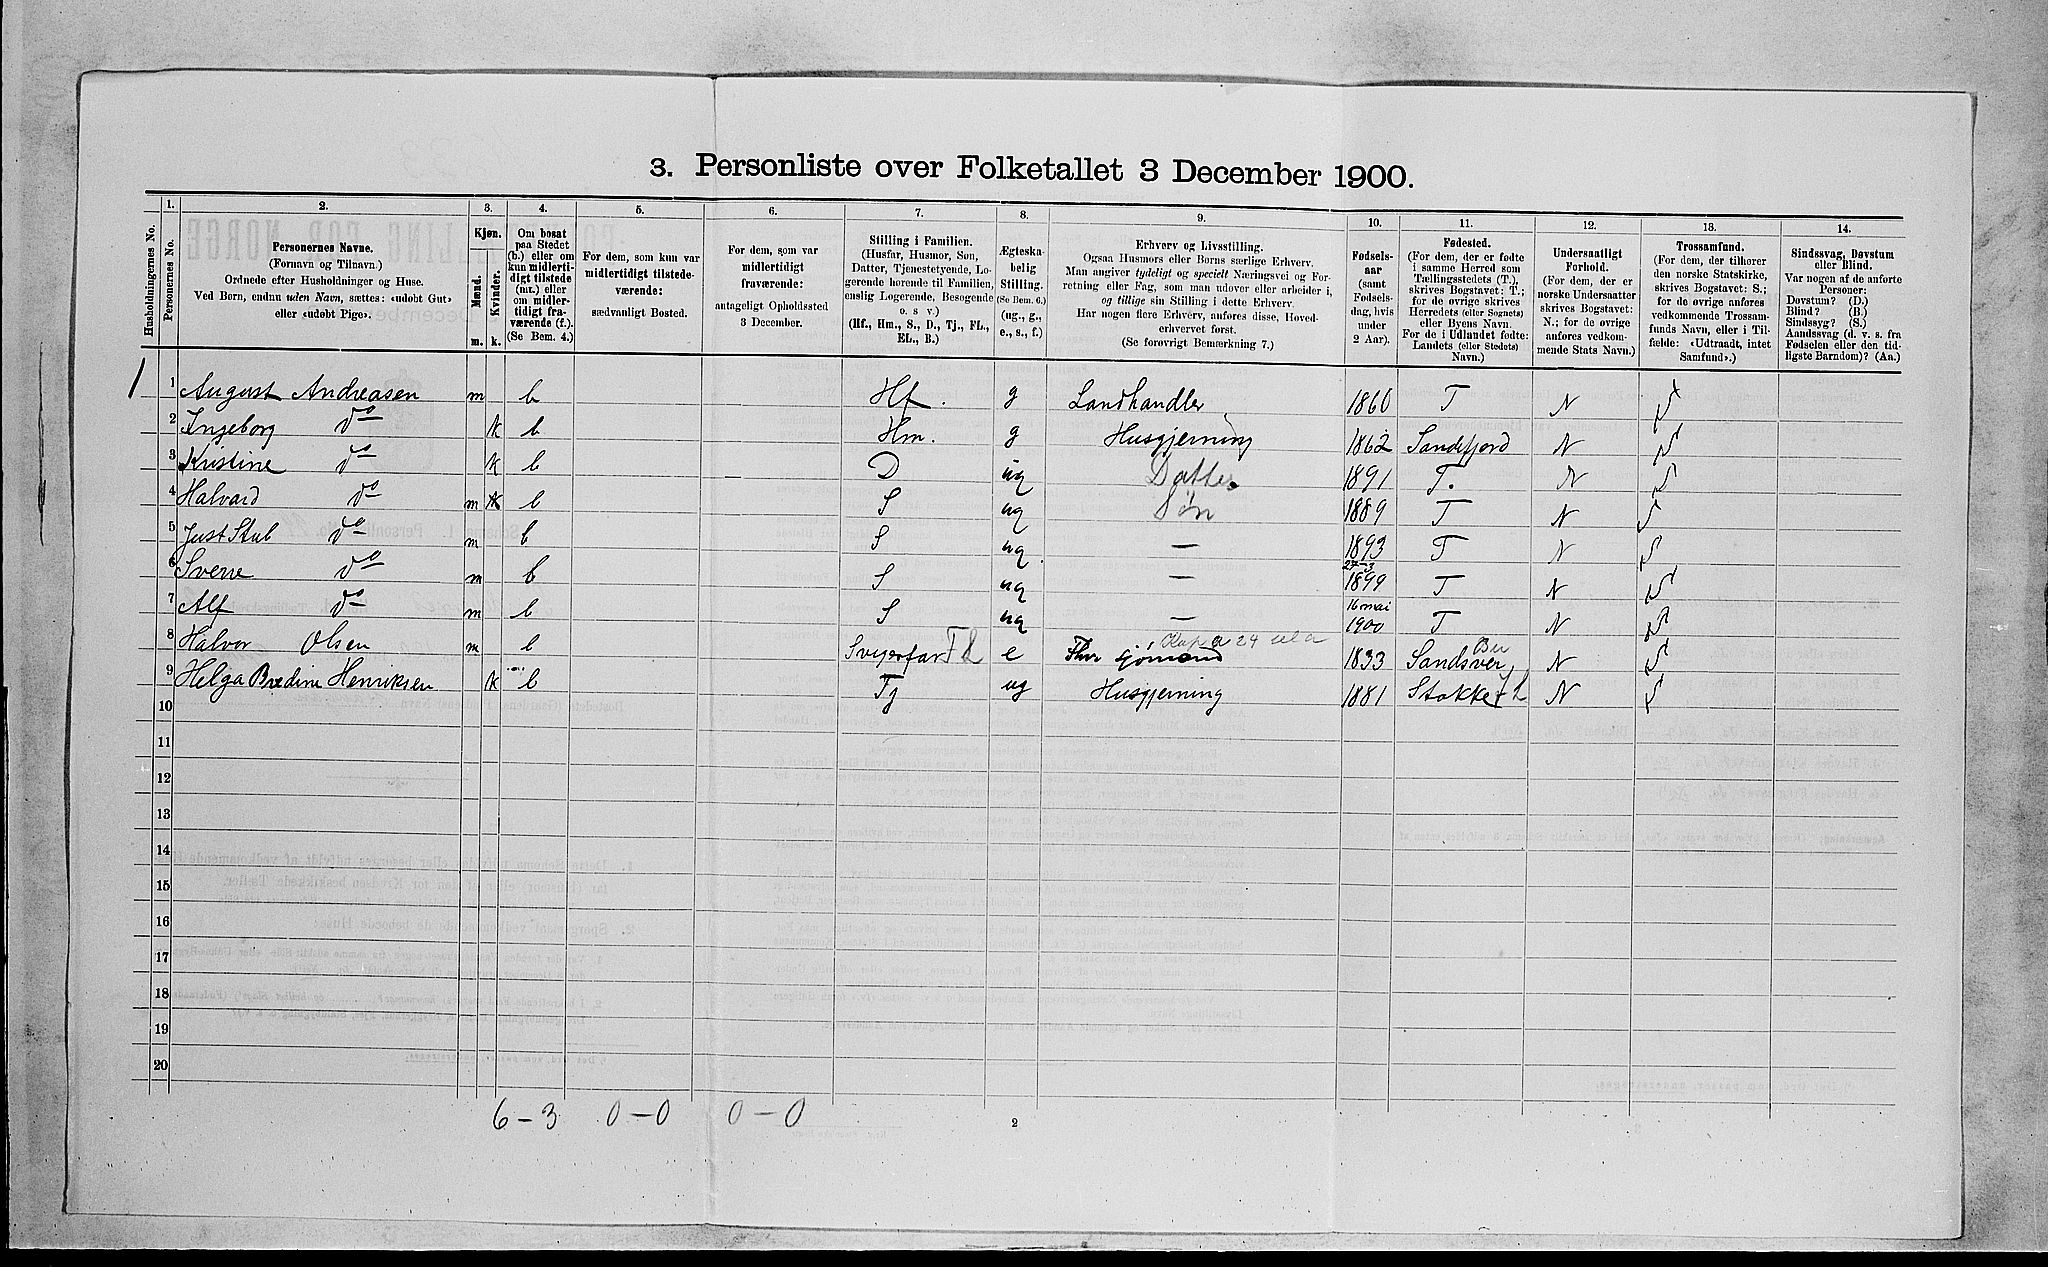 3. Personliste over Folketallet 3 December 1900.
1. 2. 3. 4. 5. 6. 7. 8. 9. 10. 11. 12. 13. 14.
Husholdningernes No.
Personernes No.
Personernes Navne.
(Fornavn og Tilnavn.)
Ordnede efter Husholdninger og Huse.
Ved Børn, endnu uden Navn, sættes: «udøbt Gut»
eller «udøbt Pige».
Kjøn.
Mænd.
Kvinder.
m. k.
Om bosat
paa Stedet
(b.) eller om
kun midlerti-
digt tilstede
(mt.) eller
om midler-
tidigt fra-
værende (f.).
(Se Bem. 4.)
For dem, som kun var
midlertidigt tilstede-
værende:
sædvanligt Bosted.
For dem, som var
midlertidigt
fraværende:
antageligt Opholdssted
3 December.
Stilling i Familien.
(Husfar, Husmor, Søn,
Datter, Tjenestetyende, Lo-
gerende hørende til Familien,
enslig Logerende, Besøgende
o. s. v.)
(Hf., Hm., S., D., Tj., FL.,
EL., B.)
Ægteska-
belig
Stilling.
(Se Bem. 6.)
(ug., g.,
e., s., f.)
Erhverv og Livsstilling.
Ogsaa Husmors eller Børns særlige Erhverv.
Man angiver tydeligt og specielt Næringsvei og For-
retning eller Fag, som man udøver eller arbeider i,
og tillige sin Stilling i dette Erhverv.
Har nogen flere Erhverv, anføres disse, Hoved-
erhvervet først.
(Se forøvrigt Bemærkning 7.)
Fødsels-
aar
(samt
Fødsels-
dag, hvis
under
2 Aar).
Fødested.
(For dem, der er fødte
i samme Herred som
Tællingsstedets (T.),
skrives Bogstavet: T.;
for de øvrige skrives
Herredets (eller Sognets)
eller Byens Navn.
For de i Udlandet fødte:
Landets (eller Stedets)
Navn.)
Undersaatligt
Forhold.
(For dem, der er
norske Undersaatter
skrives Bogstavet:
N.; for de øvrige
anføres vedkom-
mende Stats Navn.)
Trossamfund.
(For dem, der tilhører
den norske Statskirke,
skrives Bogstavet: S.;
for de øvrige anføres
vedkommende Trossam-
funds Navn, eller i Til-
fælde: «Udtraadt, intet
Samfund».)
Sindssvag, Døvstum
eller Blind.
Var nogen af de anførte
Personer:
Døvstum? (D.)
Blind? (B.)
Sindssyg? (S.)
Aandssvag (d. v. s. fra
Fødselen eller den tid-
ligste Barndom)? (Aa.)
1 1 August Andreasen m b Hf. g Landhandler 1860 T N S
2 Ingeborg do k b Hm. g Husgjerning 1862 Sandefjord N S
3 Kristine do k b D ug Datter 1891 T. N S
4 Halvard do m b S ug Søn 1889 T N S
5 Just Stub do m b S ug — 1893 T N S
6 Sverre do m b S ug — 27-3 1899 T N S
7 Alf do m b S ug — 16 mai 1900 T N S
8 Halvor Olsen m b Svigerfar FL e Fhv sjømand 1833 Sandsver N S
9 Helga Bredine Henriksen k b Tj ug Husgjerning 1881 Stokke N S
10
11
12
13
14
15
16
17
18
19
20
6 – 3 0 – 0 0 – 0
2